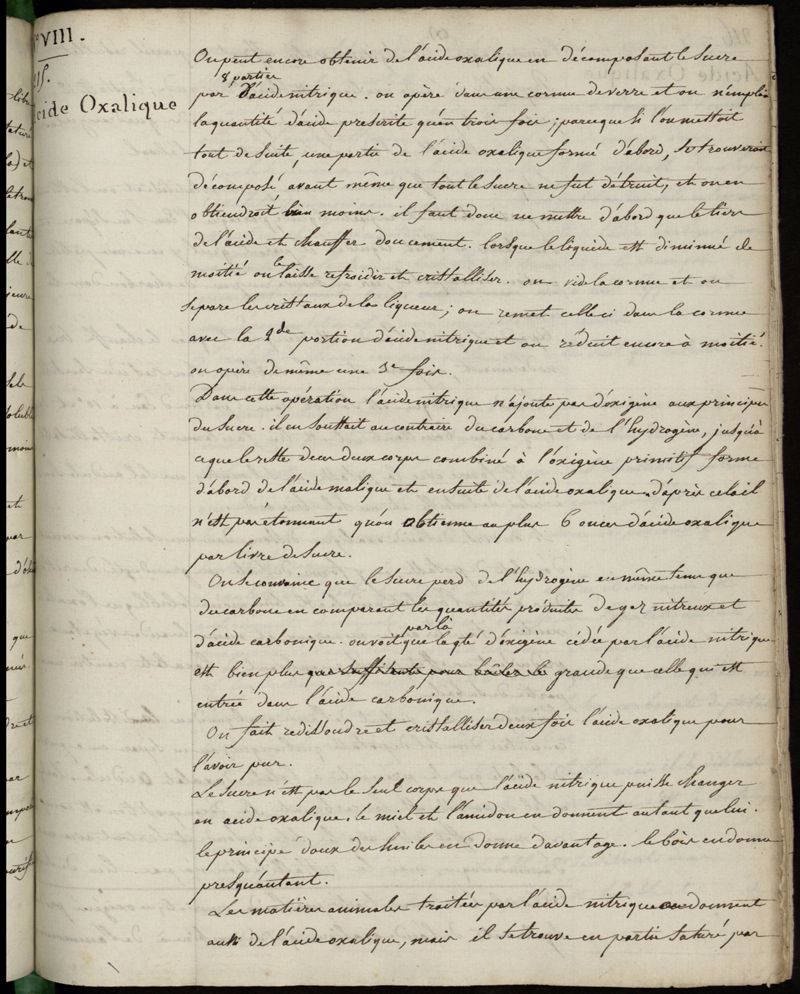 VIII.
Acide Oxalique
On peut encore obtenir de l'acide oxalique en décomposant le sucre
8 parties
par d'acide nitrique. on opère dans une cornue de verre et on n'emploie
la quantité d'acide prescrite qu'en trois fois; parceque si l'on mettoit
tout de suite, une partie de l'acide oxalique formé d'abord, se trouveroit
décomposé avant même que tout le sucre ne fut détruit, et on en
obtiendroit bien moins. il faut donc ne mettre d'abord que le tiers
de l'acide et chauffer doucement. lorsque le liquide est diminué de
moitié on le laisse refroidir et cristalliser. on vide la cornue et on
separe les cristaux de la liqueur; on remet celle ci dans la cornue
avec la 2de portion d'acide nitrique et on réduit encore à moitié.
on opère de même une 3e fois.
Dans cette opération l'acide nitrique n'ajoute pas d'oxigène aux principes
du sucre. il en soustrait au contraire du carbone et de l'hydrogène, jusqu'à
ce que le reste de ces deux corps combiné à l'oxigène primitif forme
d'abord de l'acide malique et ensuite de l'acide oxalique. d'après cela il
n'est pas étonnant qu'on obtienne au plus 6 onces d'acide oxalique
par livre de sucre.
On se convainc que le sucre perd de l'hydrogène en même tems que
du carbone en comparant les quantités produites de gaz nitreux et
par là
d'acide carbonique. on voit que la qté d'oxigène cédée par l'acide nitrique
est bien plus que suffisante pour brûler le grande que celle qui est
entrée dans l'acide carbonique.
On fait redissoudre et cristalliser deux fois l'acide oxalique pour
l'avoir pur.
Le sucre n'est pas le seul corps que l'acide nitrique puisse changer
en acide oxalique. le miel et l'amidon en donnent autant que lui.
le principe doux des huiles en donne davantage. le bois en donne
presqu'autant.
Les matières animales traitées par l'acide nitrique donnent
aussi de l'acide oxalique, mais il se trouve en partie saturé par